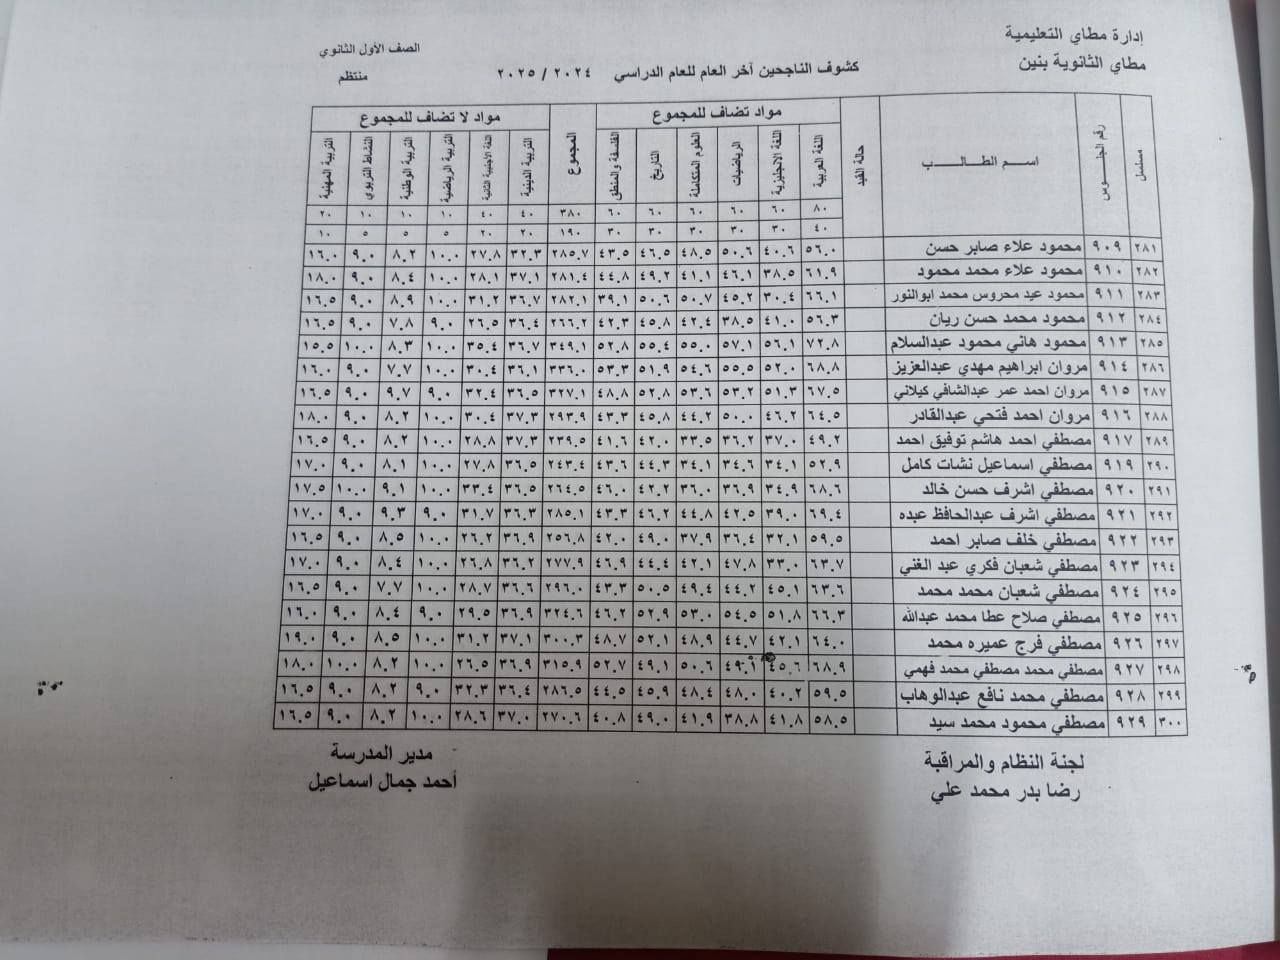 إدارة مطاي التعليمية
مطاي الثانوية بنين
الصف الأول الثانوي
كشوف الناجحين آخر العام للعام الدراسي ٢٠٢٤ / ٢٠٢٥
منتظم
مسلسل رقم الجلـــوس اســـم الطالـــــب حالة القيد مواد تضاف للمجموع المجموع مواد لا تضاف للمجموع
اللغة العربية اللغة الانجليزية الرياضيات العلوم المتكاملة التاريخ الفلسفة والمنطق التربية الدينية اللغة الأجنبية الثانية التربية الرياضية التربية الوطنية النشاط التربوي التربية المهنية
٨٠ ٦٠ ٦٠ ٦٠ ٦٠ ٦٠ ٣٨٠ ٤٠ ٤٠ ١٠ ١٠ ١٠ ٢٠
٤٠ ٣٠ ٣٠ ٣٠ ٣٠ ٣٠ ١٩٠ ٢٠ ٢٠ ٥ ٥ ٥ ١٠
٢٨١ ٩٠٩ محمود علاء صابر حسن ٥٦.٠ ٤٠.٦ ٥٠.٦ ٤٨.٥ ٤٦.٥ ٤٣.٥ ٢٨٥.٧ ٣٢.٣ ٢٧.٨ ١٠.٠ ٨.٢ ٩.٠ ١٦.٠
٢٨٢ ٩١٠ محمود علاء محمد محمود ٦١.٩ ٣٨.٥ ٤٦.١ ٤١.١ ٤٩.٢ ٤٤.٨ ٢٨١.٤ ٣٧.١ ٢٨.١ ١٠.٠ ٨.٤ ٩.٠ ١٨.٠
٢٨٣ ٩١١ محمود عيد محروس محمد ابوالنور ٦٦.١ ٣٠.٤ ٤٥.٢ ٥٠.٧ ٥٠.٦ ٣٩.١ ٢٨٢.١ ٣٦.٧ ٣١.٢ ١٠.٠ ٨.٩ ٩.٠ ١٦.٥
٢٨٤ ٩١٢ محمود محمد حسن ريان ٥٦.٣ ٤١.٠ ٣٨.٥ ٤٢.٤ ٤٥.٨ ٤٢.٣ ٢٦٦.٢ ٣٦.٤ ٢٦.٥ ٩.٠ ٧.٨ ٩.٠ ١٦.٥
٢٨٥ ٩١٣ محمود هاني محمود عبدالسلام ٧٢.٨ ٥٦.١ ٥٧.١ ٥٥.٠ ٥٥.٤ ٥٢.٨ ٣٤٩.١ ٣٦.٧ ٣٥.٤ ١٠.٠ ٨.٣ ١٠.٠ ١٥.٥
٢٨٦ ٩١٤ مروان ابراهيم مهدي عبدالعزيز ٦٨.٨ ٥٢.٠ ٥٥.٥ ٥٤.٦ ٥١.٩ ٥٣.٣ ٣٣٦.٠ ٣٦.١ ٣٠.٤ ١٠.٠ ٧.٧ ٩.٠ ١٦.٠
٢٨٧ ٩١٥ مروان احمد عمر عبدالشافي كيلاني ٦٧.٥ ٥١.٣ ٥٣.٢ ٥٣.٦ ٥٢.٨ ٤٨.٨ ٣٢٧.١ ٣٦.٥ ٣٢.٤ ٩.٠ ٩.٧ ٩.٠ ١٦.٥
٢٨٨ ٩١٦ مروان احمد فتحي عبدالقادر ٦٤.٥ ٤٦.٢ ٥٠.٠ ٤٤.٢ ٤٥.٨ ٤٣.٣ ٢٩٣.٩ ٣٧.٣ ٣٠.٤ ١٠.٠ ٨.٢ ٩.٠ ١٨.٠
٢٨٩ ٩١٧ مصطفي احمد هاشم توفيق احمد ٤٩.٢ ٣٧.٠ ٣٦.٢ ٣٣.٥ ٤٢.٠ ٤١.٦ ٢٣٩.٥ ٣٧.٣ ٢٨.٨ ١٠.٠ ٨.٢ ٩.٠ ١٦.٥
٢٩٠ ٩١٩ مصطفي اسماعيل نشات كامل ٥٢.٩ ٣٤.١ ٣٤.٦ ٣٤.١ ٤٤.٣ ٤٣.٦ ٢٤٣.٤ ٣٦.٥ ٢٧.٨ ١٠.٠ ٨.١ ٩.٠ ١٧.٠
٢٩١ ٩٢٠ مصطفي اشرف حسن خالد ٦٨.٦ ٣٤.٩ ٣٦.٩ ٣٦.٠ ٤٢.٢ ٤٦.٠ ٢٦٤.٥ ٣٦.٥ ٣٣.٤ ١٠.٠ ٩.١ ١٠.٠ ١٧.٥
٢٩٢ ٩٢١ مصطفي اشرف عبدالحافظ عبده ٦٩.٤ ٣٩.٠ ٤٢.٥ ٤٤.٨ ٤٦.٢ ٤٣.٣ ٢٨٥.١ ٣٦.٣ ٣١.٧ ٩.٠ ٩.٣ ٩.٠ ١٧.٠
٢٩٣ ٩٢٢ مصطفي خلف صابر احمد ٥٩.٥ ٣٢.١ ٣٦.٤ ٣٧.٩ ٤٩.٠ ٤٢.٠ ٢٥٦.٨ ٣٦.٩ ٢٦.٢ ١٠.٠ ٨.٥ ٩.٠ ١٦.٥
٢٩٤ ٩٢٣ مصطفي شعبان فكري عبد الغني ٦٣.٧ ٣٣.٠ ٤٧.٨ ٤٢.١ ٤٤.٤ ٤٦.٩ ٢٧٧.٩ ٣٦.٢ ٢٦.٨ ١٠.٠ ٨.٤ ٩.٠ ١٧.٠
٢٩٥ ٩٢٤ مصطفي شعبان محمد محمد ٦٣.٦ ٤٥.١ ٤٤.٢ ٤٩.٤ ٥٠.٥ ٤٣.٣ ٢٩٦.٠ ٣٦.٦ ٢٨.٧ ١٠.٠ ٧.٧ ٩.٠ ١٦.٥
٢٩٦ ٩٢٥ مصطفي صلاح عطا محمد عبدالله ٦٦.٣ ٥١.٨ ٥٤.٥ ٥٣.٠ ٥٢.٩ ٤٦.٢ ٣٢٤.٦ ٣٦.٩ ٢٩.٥ ٩.٠ ٨.٤ ٩.٠ ١٦.٠
٢٩٧ ٩٢٦ مصطفي فرج عميره محمد ٦٤.٠ ٤٢.١ ٤٤.٧ ٤٨.٩ ٥٢.١ ٤٨.٧ ٣٠٠.٣ ٣٧.١ ٣١.٢ ١٠.٠ ٨.٥ ٩.٠ ١٩.٠
٢٩٨ ٩٢٧ مصطفي محمد مصطفي محمد فهمي ٦٨.٩ ٤٥.٦ ٤٩.١ ٥٠.٦ ٤٩.١ ٥٢.٧ ٣١٥.٩ ٣٦.٩ ٢٦.٥ ١٠.٠ ٨.٢ ١٠.٠ ١٨.٠
٢٩٩ ٩٢٨ مصطفي محمد نافع عبدالوهاب ٥٩.٥ ٤٠.٢ ٤٨.٠ ٤٨.٤ ٤٥.٩ ٤٤.٥ ٢٨٦.٥ ٣٦.٤ ٣٢.٣ ٩.٠ ٨.٢ ٩.٠ ١٦.٥
٣٠٠ ٩٢٩ مصطفي محمود محمد سيد ٥٨.٥ ٤١.٨ ٣٨.٨ ٤١.٩ ٤٩.٠ ٤٠.٨ ٢٧٠.٦ ٣٧.٠ ٢٨.٦ ١٠.٠ ٨.٢ ٩.٠ ١٦.٥
لجنة النظام والمراقبة
رضا بدر محمد علي
مدير المدرسة
أحمد جمال اسماعيل